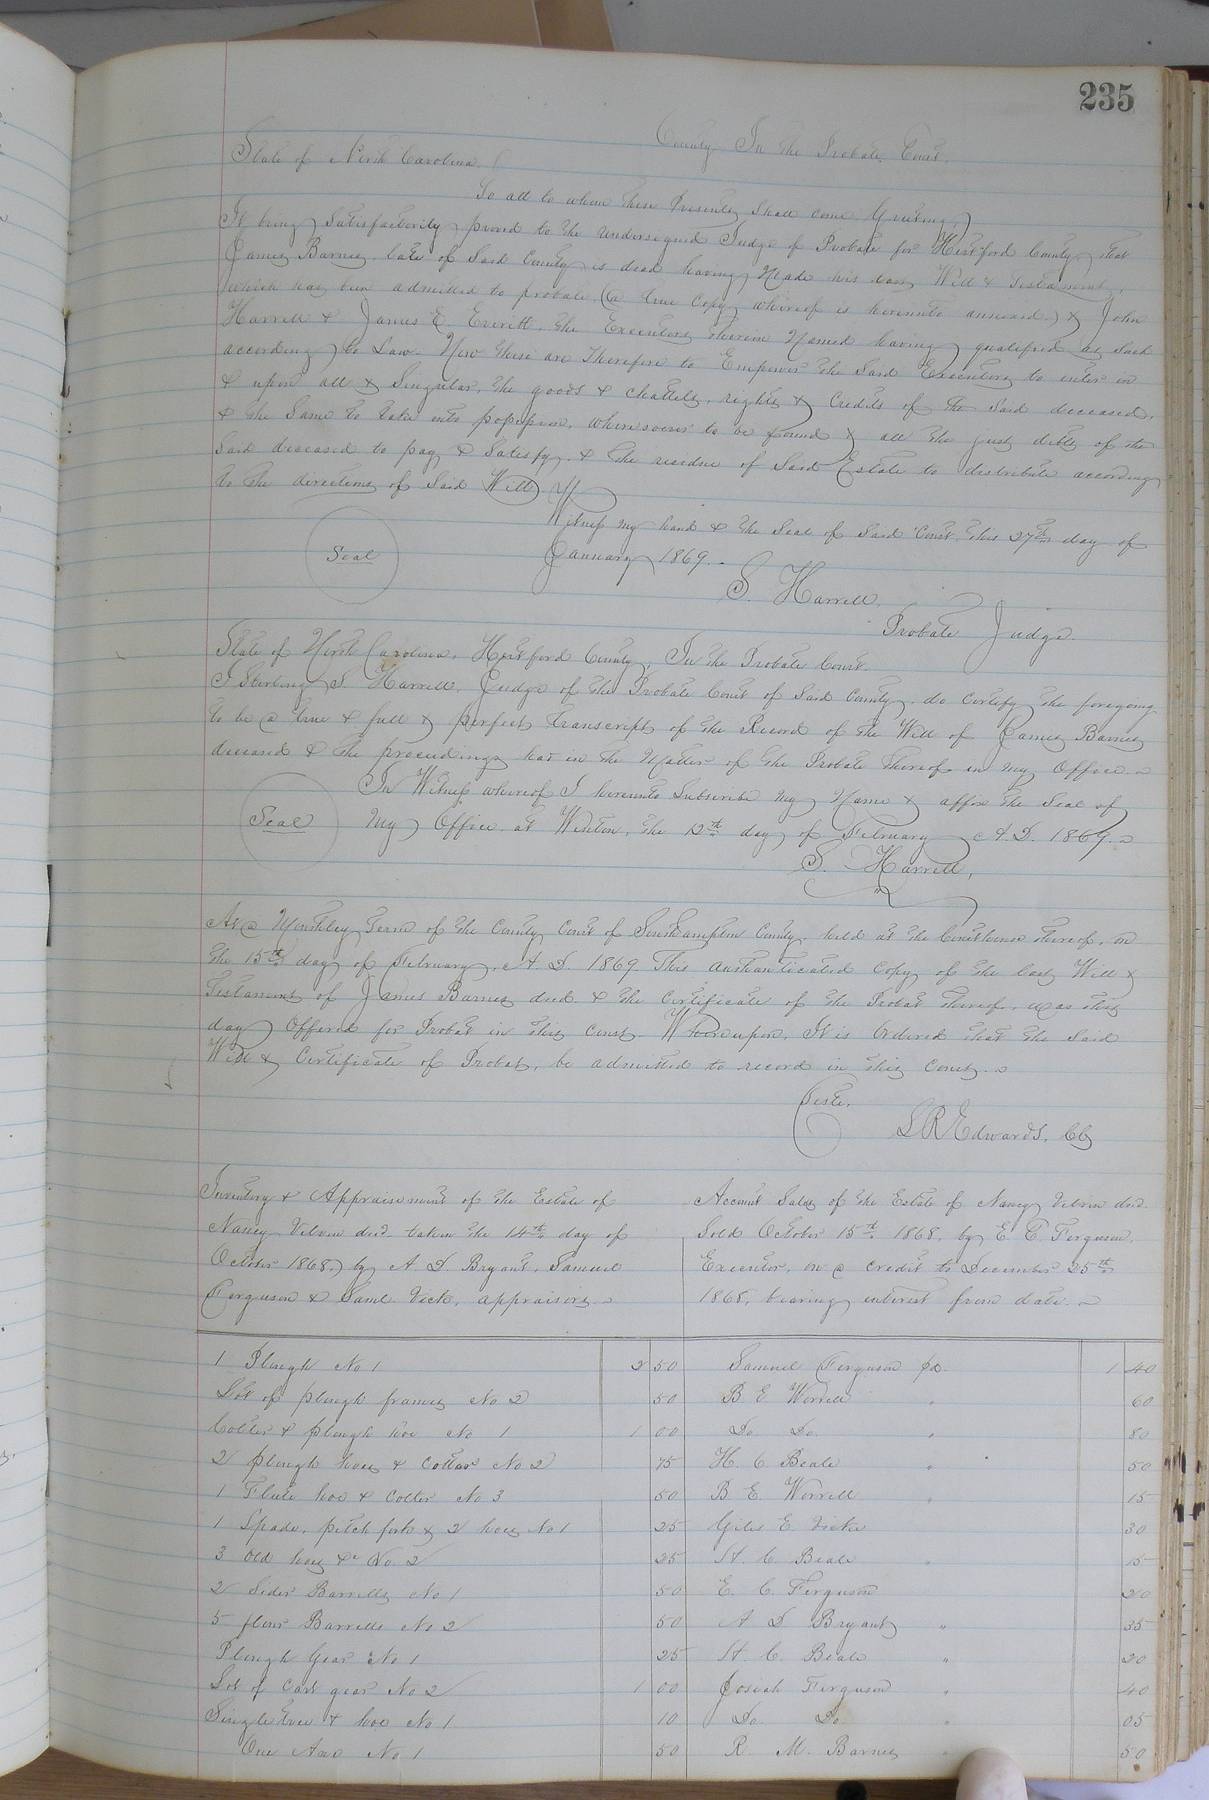 235
State of North Carolina. County In the Probate Court.
To all to whom these Presents Shall come Greeting
It being Satisfactorily proved to the Undersigned Judge of Probate for Hertford County, that
James Barnes late of Said County is dead having Made his last Will & Testament,
which has been admitted to probate (a true Copy whereof is hereunto annexed) & John
Harrell & James E Everitt, the Executors therein Named having qualified as Such
according to Law. Now these are Therefore to Empower the Said Executors to enter in
& upon all & Singular, the goods & chattels, rights & Credits of the Said deceased,
& the Same to take into possession, wheresoever to be found & all the just debts of the
Said deceased to pay & Satisfy, & the residue of Said Estate to distribute according
to the directions of Said Will.
Witness my hand & the Seal of Said Court this 27th day of
Seal January 1869.
S. Harrell,
Probate Judge
State of North Carolina, Hertford County, In the Probate Court.
I Sterling S. Harrell, Judge of the Probate Court of Said County, do certify the foregoing
to be a true & full & perfect transcript of the Record of the Will of James Barnes
deceased & the proceedings had in the Matter of the Probate thereof in my Office.
In Witness whereof I hereunto Subscribe my Name & affix the Seal of
Seal My Office at Winton, the 12th day of February A.D. 1869.
S. Harrell,
At a Monthley term of the County Court of Southampton County, held at the Courthouse thereof, on
the 15th day of February, A. D. 1869. This authanticated Copy of the last Will &
Testament of James Barnes decd. & the Certificate of the Probat thereof, was this
day Offered for Probat in this Court Whereupon, It is Ordered that the Said
Will & Certificate of Probat, be admitted to record in this Court.
Teste,
L R Edwards, Clk
Inventory & Appraisement of the Estate of
Nancy decd. taken the 14th day of
October 1868, by A. D. Bryant, Samuel
Ferguson & Saml. Vick, appraisers.
Account Sales of the Estate of Nancy decd.
Sold October 15th 1868, by E. C. Ferguson,
Executor, on a credit to December 25th
1868, bearing interest from date.
1 Plough No 1 2 50 Samuel Ferguson 1 40
Lot of plough frames No 2 50 B E Worrell " 60
Colter & plough hoe No 1 1 00 Do. Do. " 80
2 plough hoes & Colter No 2 75 H. C Beale " 50
1 Fluke hoe & Colter No 3 50 B E. Worrell " 15
1 Spade, pitch fork & 2 hoes No 1 25 Giles E. 30
3 Old hoes &c No. 2 25 H. C. Beale " 15
2 Sider Barrells No 1 50 E. C. Ferguson 20
5 flour Barrells No 2 50 A D Bryant " 35
Plough Gear No 1 25 H. C. Beale " 20
Lot of Cart gear No 2 1 00 Josiah Ferguson " 40
Singletree & hoe No 1 10 Do. Do. " 05
One Axe No 1 50 R. M. Barnes " 50